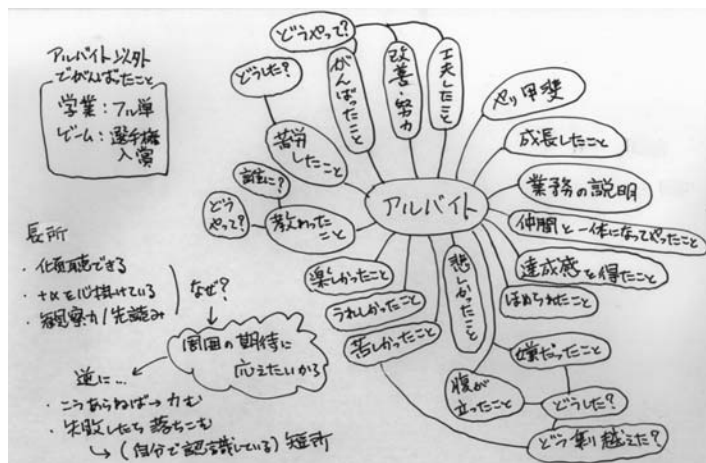 アルバイト以外
でがんばったこと
学業：フル単
ゲーム：選手権
入賞
長所
・傾聴できる
・+αを心掛けている
・観察力/先読み
なぜ？
周囲の期待に
応えたいから
逆に…
・こうあらねば→力む
・失敗したら落ちこむ
↳(自分で認識している)短所
アルバイト
どうやって？
がんばったこと
改善・努力
工夫したこと
やり甲斐
成長したこと
業務の説明
仲間と一体になってやったこと
達成感を得たこと
ほめられたこと
嫌だったこと
どうした？
どう乗り越えた？
悲しかったこと
腹が
立ったこと
苦しかったこと
うれしかったこと
楽しかったこと
教わった
こと
誰に？
どう
やって？
苦労
したこと
どうした？